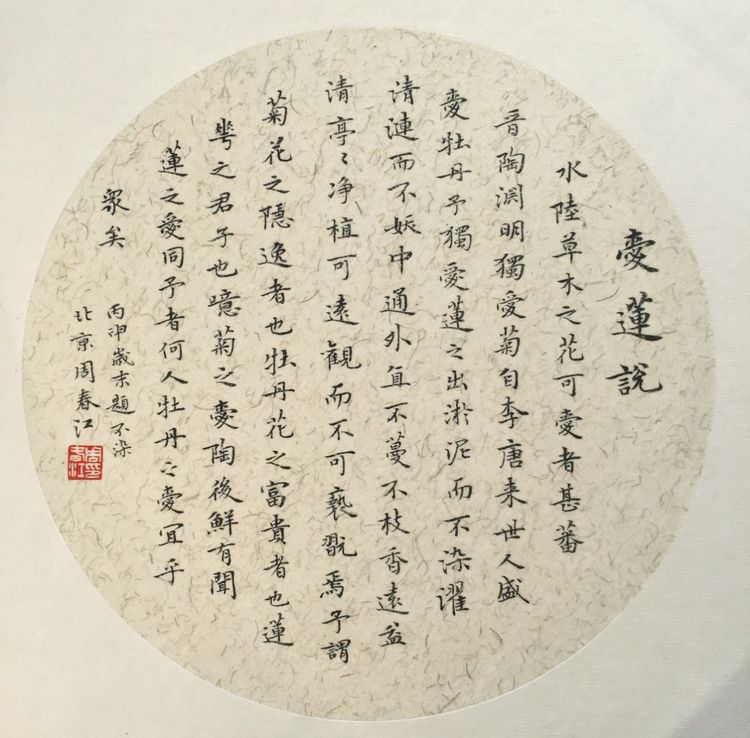 愛蓮說
水陸草木之花可愛者甚蕃
晉陶渊明獨愛菊自李唐来世人盛
愛牡丹予獨愛蓮之出淤泥而不染濯
清漣而不妖中通外直不蔓不枝香遠益
清亭〻净植可遠觀而不可褻翫焉予謂
菊花之隱逸者也牡丹花之富貴者也蓮
華之君子也噫菊之愛陶後鮮有聞
蓮之愛同予者何人牡丹之愛宜乎
衆矣
丙申歲末題不染
北京周春江
周印春江